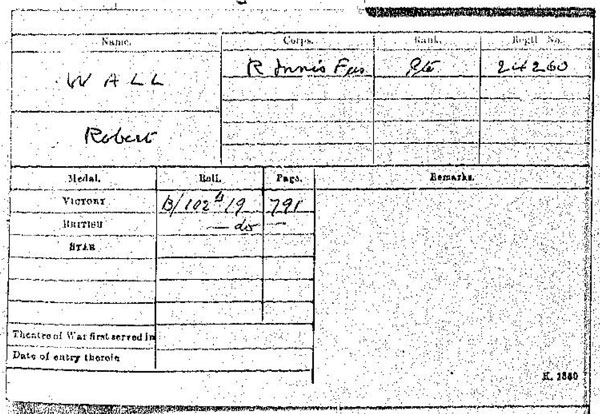 Name. Corps. Rank. Regtl. No.
WALL R Innis Fus Pte 24260
Robert
Medal. Roll. Page. Remarks.
VICTORY B/102 4/19 791
BRITISH — do —
STAR
Theatre of War first served in
Date of entry therein
K. 1380